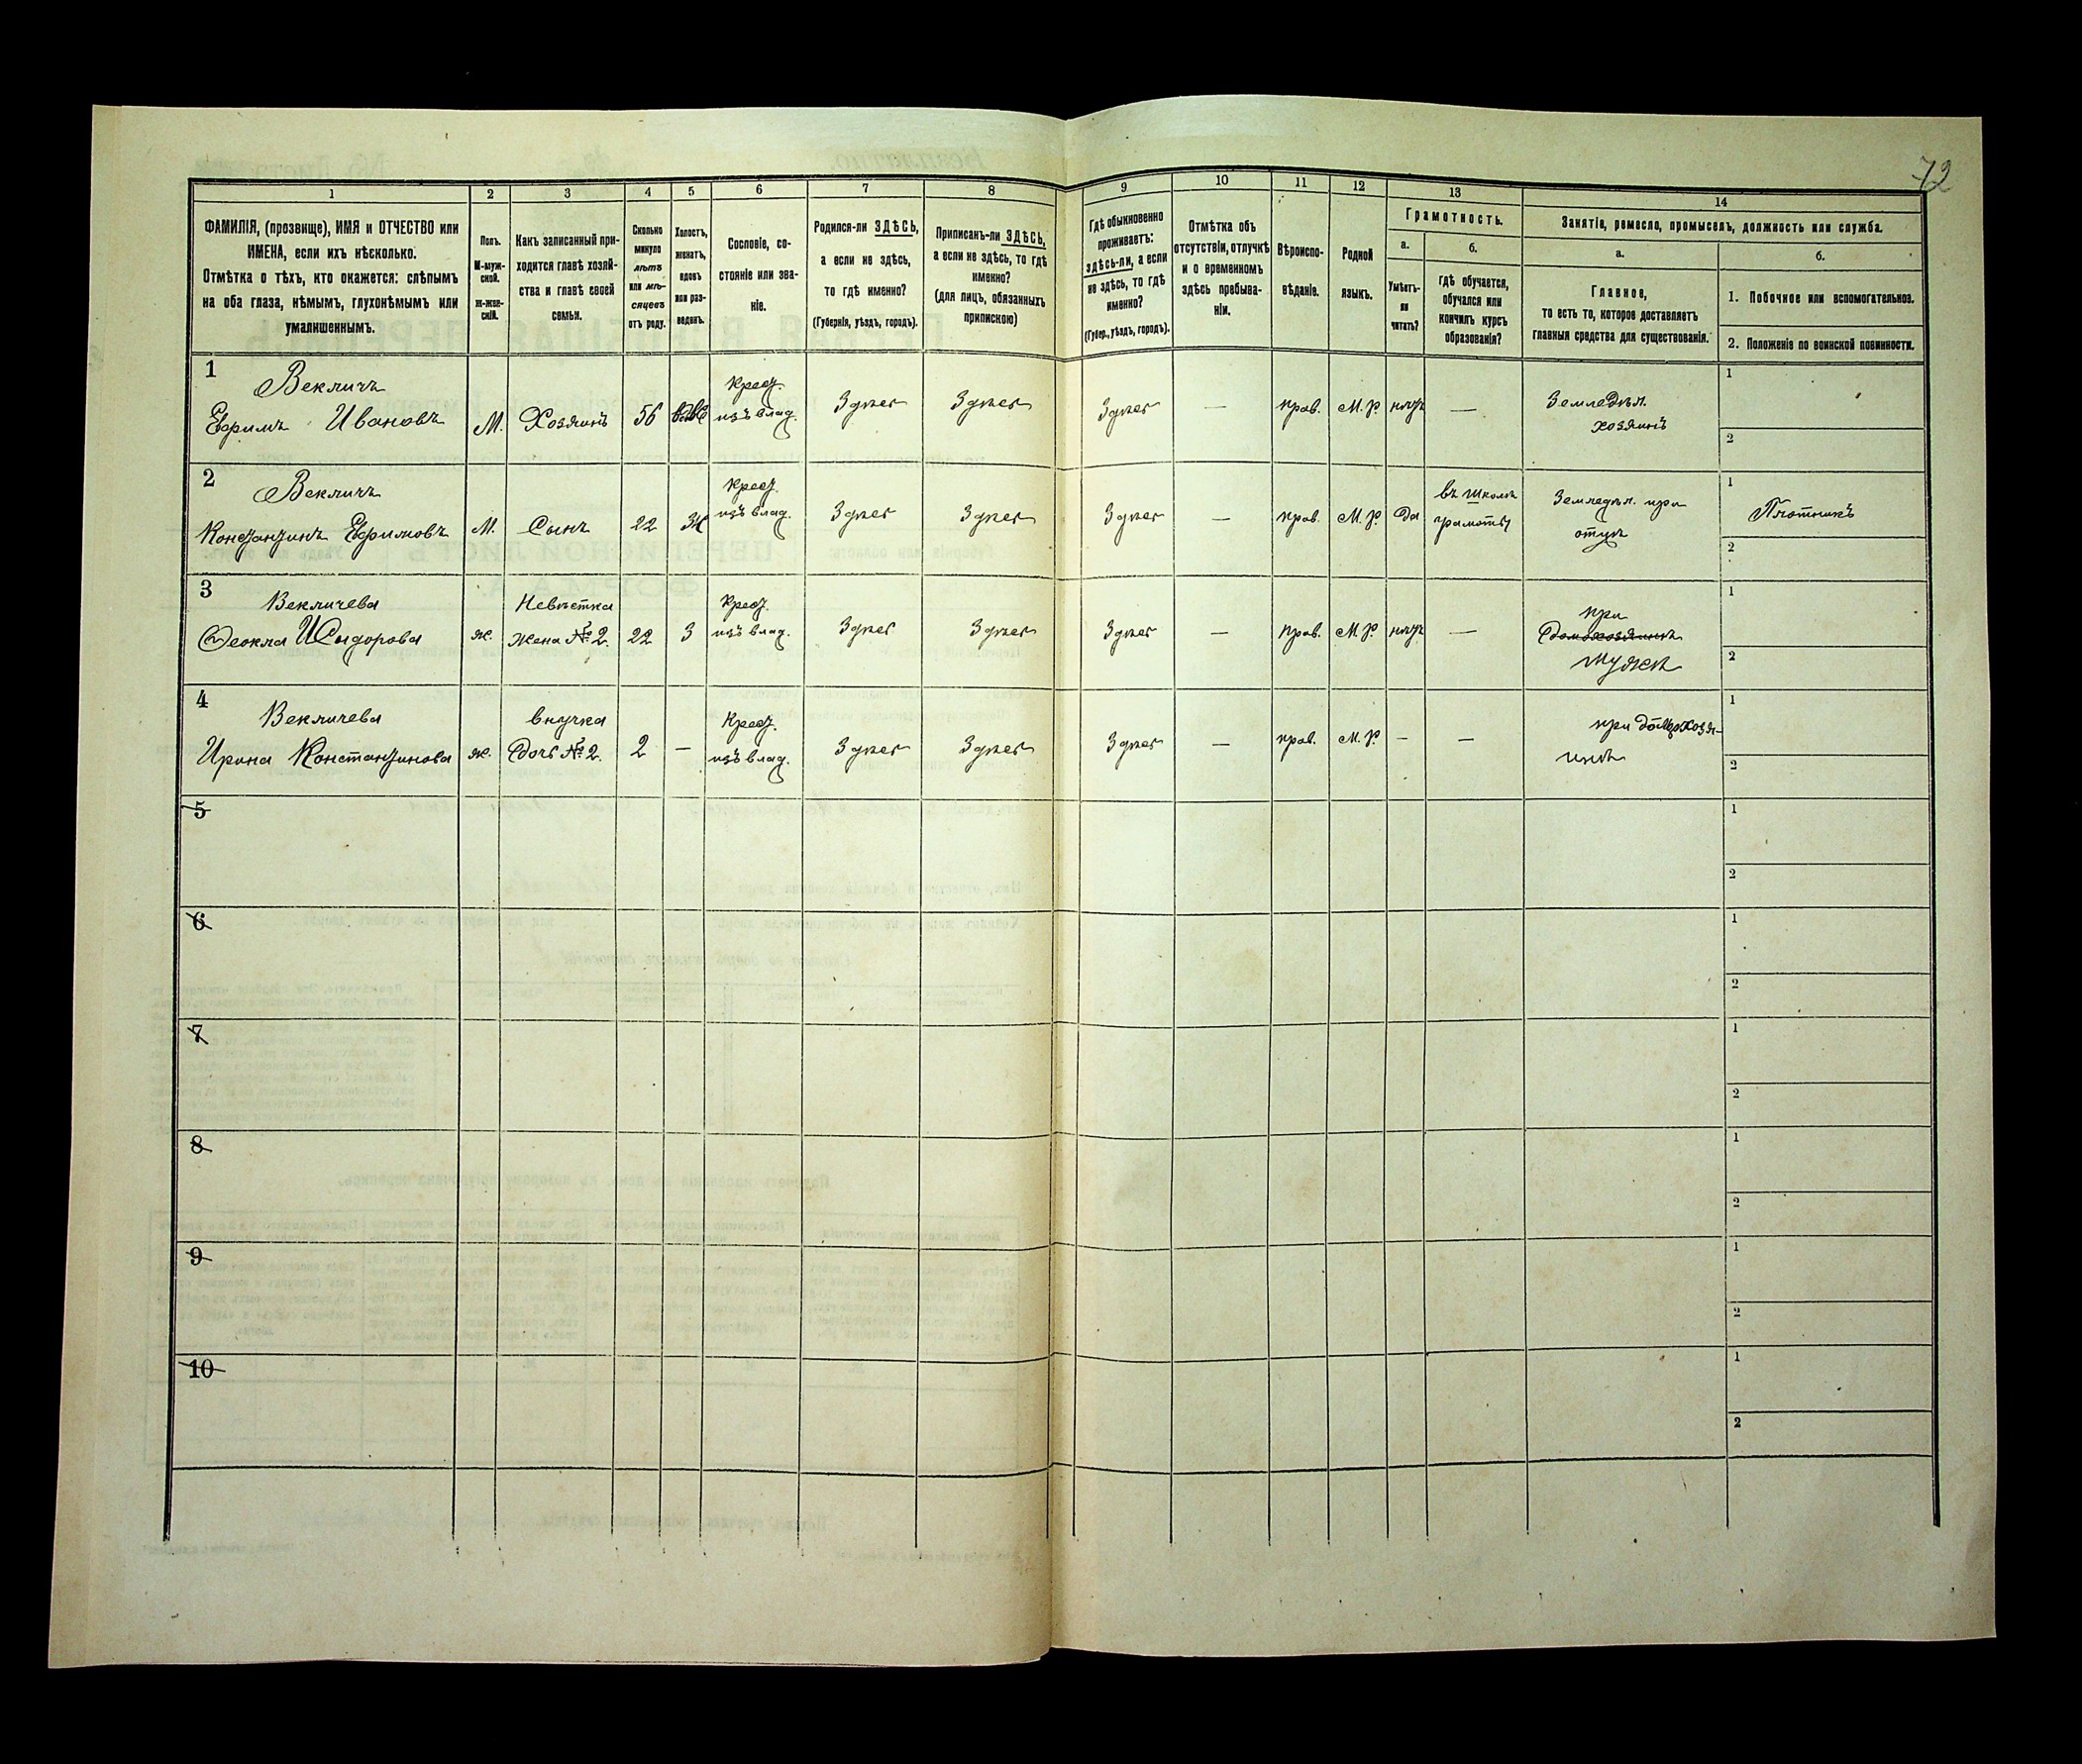 72
1 2 3 4 5 6 7 8 9 10 11 12 13 14
ФАМИЛІЯ, (прозвище), ИМЯ и ОТЧЕСТВО или
ИМЕНА, если ихъ нѣсколько.
Отмѣтка о тѣхъ, кто окажется: слѣпымъ
на оба глаза, нѣмымъ, глухонѣмымъ или
умалишеннымъ.
Полъ.
М-муж-
ской.
Ж-жен-
скій.
Какъ записанный при-
ходится главѣ хозяй-
ства и главѣ своей
семьи.
Сколько
минуло
лѣтъ
или мѣ-
сяцевъ
отъ роду.
Холостъ,
женатъ,
вдовъ
или раз-
веденъ.
Сословіе, со-
стояніе или зва-
ніе.
Родился-ли ЗДѢСЬ,
а если не здѣсь,
то гдѣ именно?
(Губернія, уѣздъ, городъ).
Приписанъ-ли ЗДѢСЬ,
а если не здѣсь, то гдѣ
именно?
(для лицъ, обязанныхъ
припискою)
Гдѣ обыкновенно
проживаетъ:
здѣсь-ли, а если
не здѣсь, то гдѣ
именно?
(Губер., уѣздъ, городъ).
Отмѣтка объ
отсутствіи, отлучкѣ
и о временномъ
здѣсь пребыва-
ніи.
Вѣроиспо-
вѣданіе.
Родной
языкъ.
Грамотность.
а.
Умѣетъ-
ли
читать?
б.
гдѣ обучается,
обучался или
кончилъ курсъ
образованія?
Занятіе, ремесло, промыселъ, должность или служба.
а.
Главное,
то есть то, которое доставляетъ
главныя средства для существованія.
б.
1. Побочное или вспомогательное.
2. Положеніе по воинской повинности.
1
Векличъ
Ефримъ Ивановъ
М.
Хозяинъ
56
Крест.
изъ влад.
Здѣсь
Здѣсь
Здѣсь
—
прав.
М. Р.
нѣтъ
—
Земледѣл.
хозяинъ
1
2
2
Векличъ
Константинъ Ефримовъ
М.
Сынъ
22
Ж
Крест.
изъ влад.
Здѣсь
Здѣсь
Здѣсь
—
прав.
М. Р.
Да
въ школѣ
грамоты
Земледѣл. при
отцѣ
1
Плотникъ
2
3
Векличева
Феокла Сидорова
ж.
Невѣстка
жена № 2.
22
З
Крест.
изъ влад.
Здѣсь
Здѣсь
Здѣсь
—
прав.
М. Р.
нѣтъ
—
при
домохозяинѣ
мужѣ
1
2
4
Векличева
Ирина Константинова
ж.
внучка
дочь № 2.
2
—
Крест.
изъ влад.
Здѣсь
Здѣсь
Здѣсь
—
прав.
М. Р.
—
—
при домохозя-
инѣ
1
2
5
1
2
6
1
2
7
1
2
8
1
2
9
1
2
10
1
2